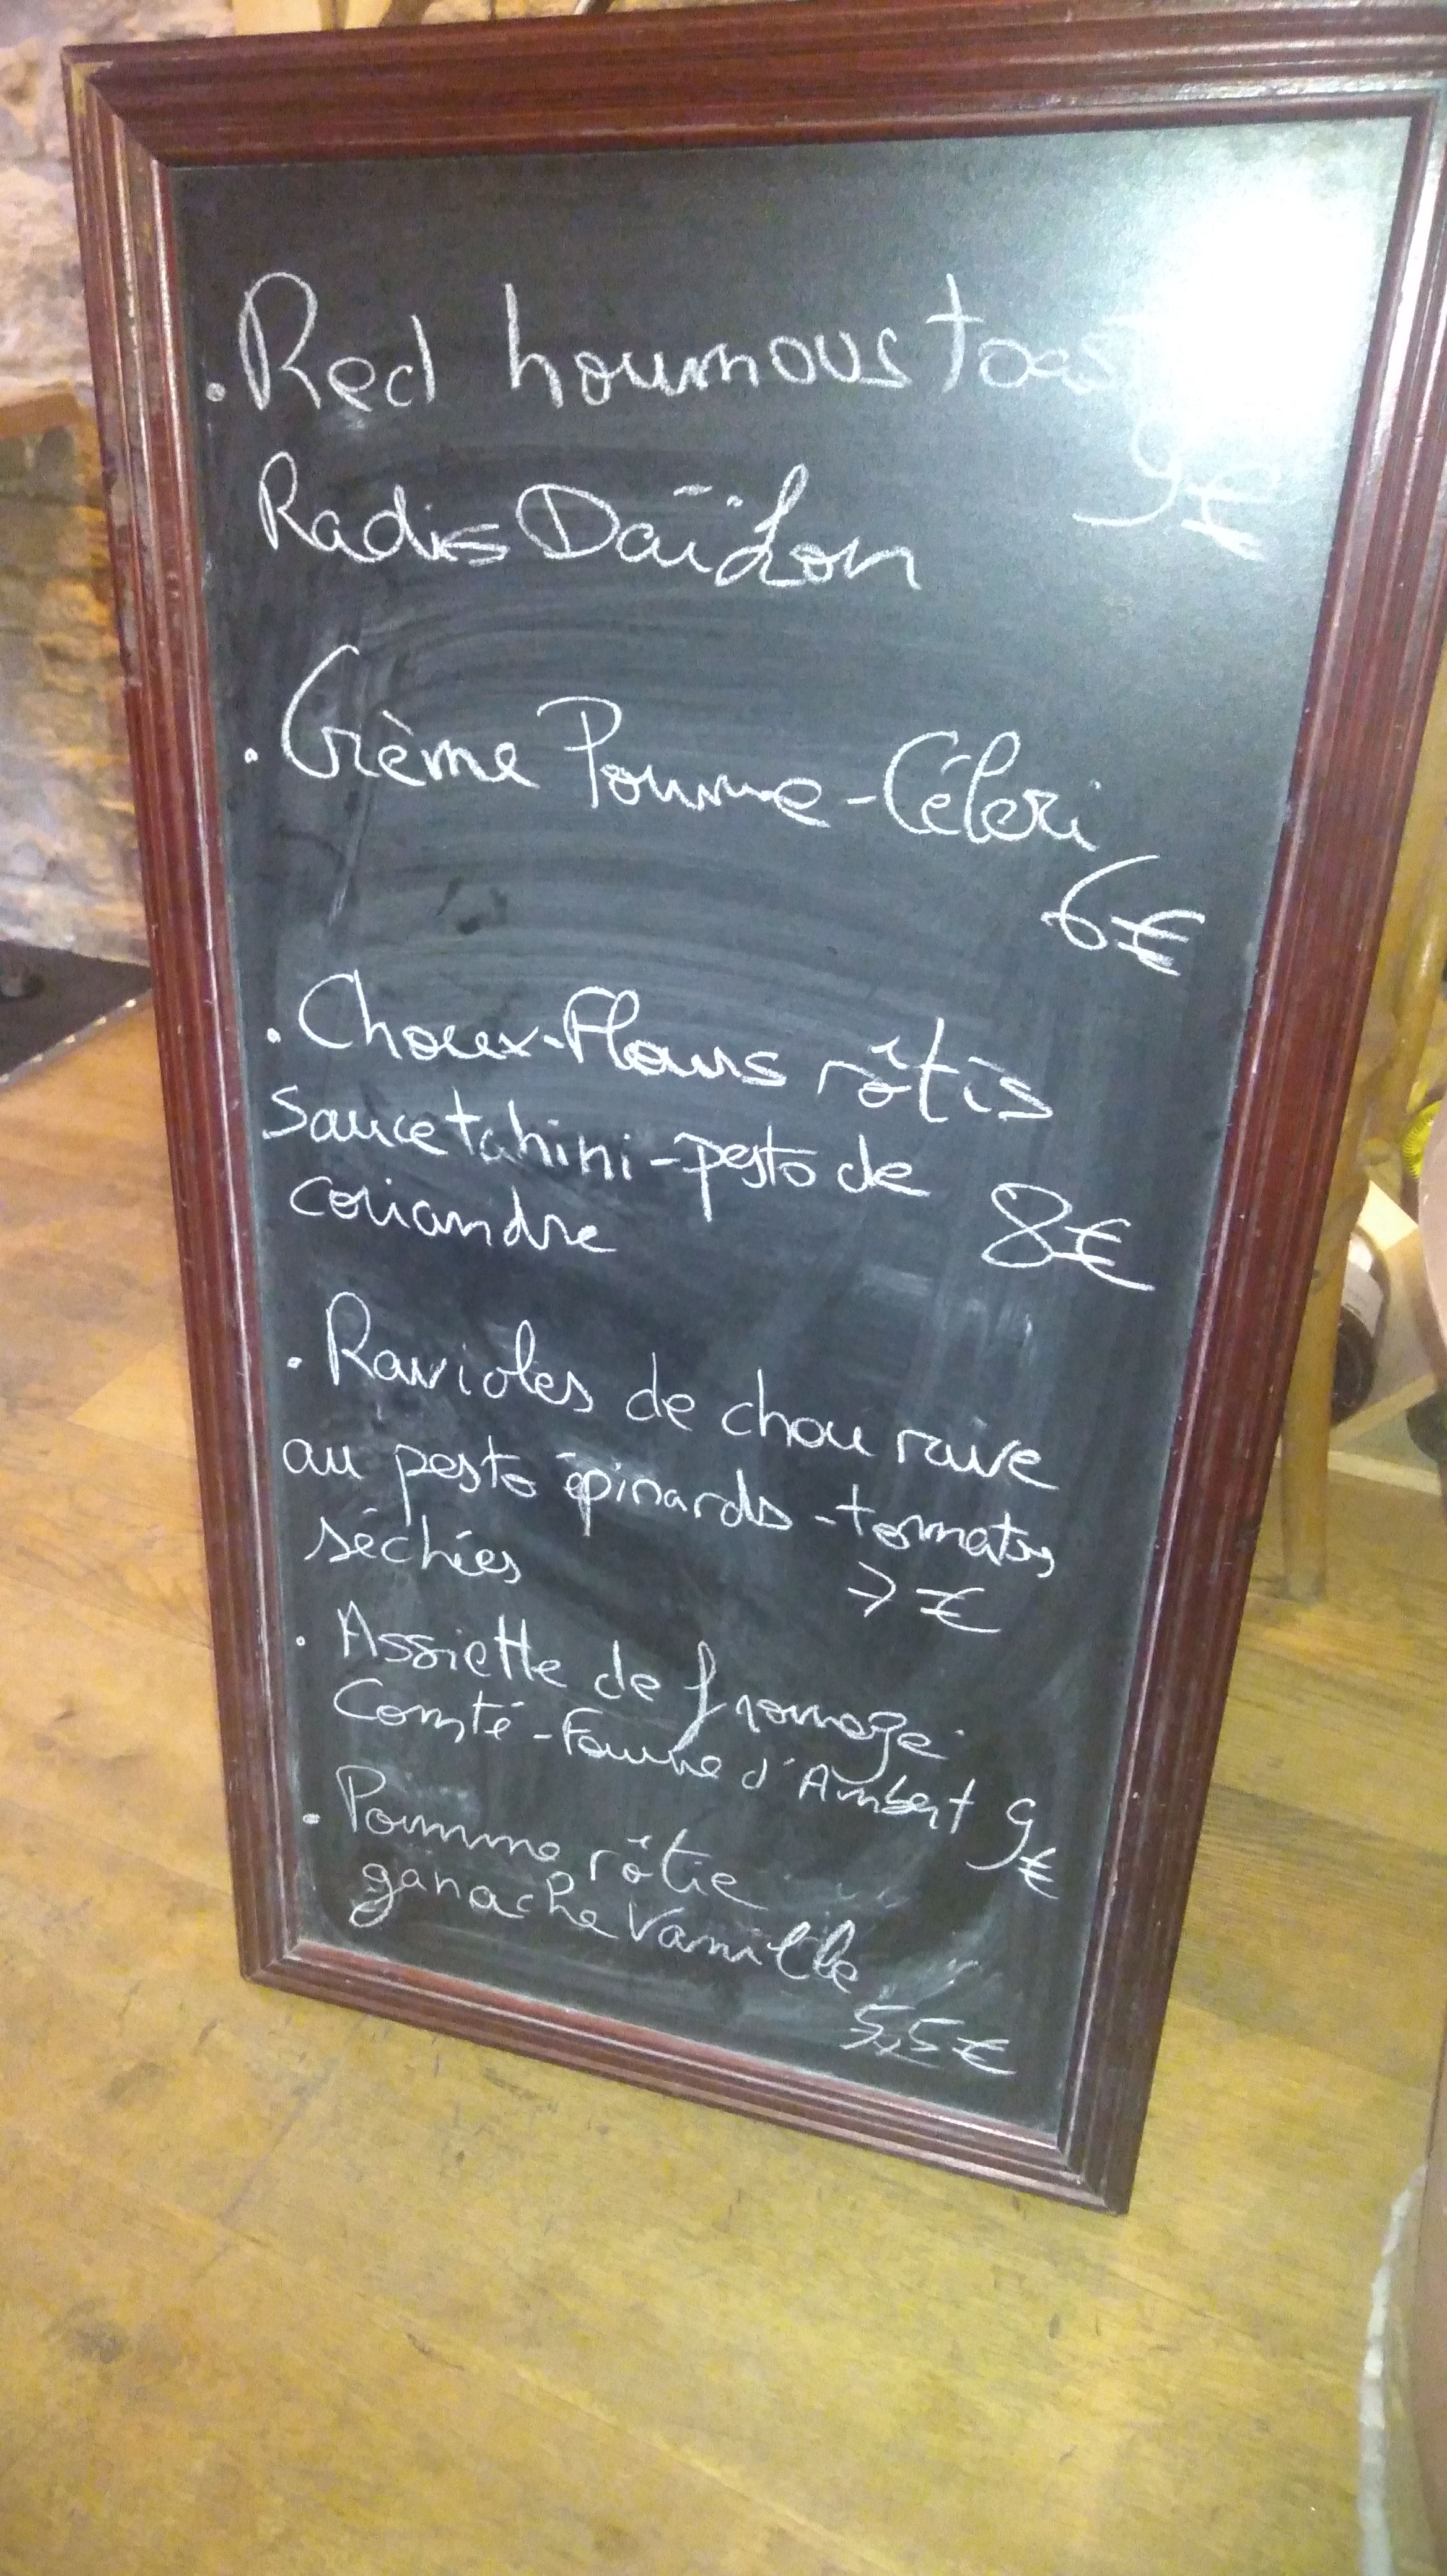 . Red houmous toast
9€
Radis Daïkon
. Crème Pomme-Céleri
6€
. Choux-Fleurs rôtis
Sauce tahini-pesto de
coriandre 8€
. Ravioles de chou rave
au pesto épinards-tomates
séchées 7€
. Assiette de fromage
Comté-Fourme d'Ambert 9€
. Pomme rôtie
ganache Vanille
5,5€